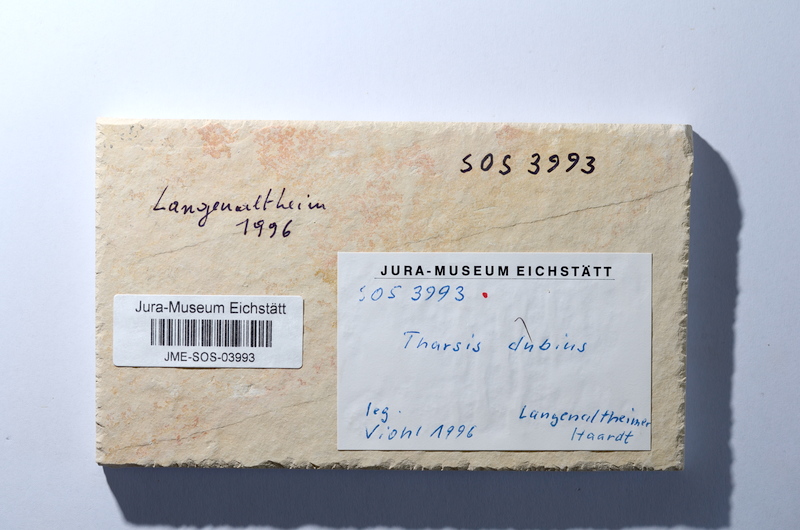 SOS 3993
Langenaltheim
1996
JURA-MUSEUM EICHSTÄTT
SOS 3993
Tharsis dubius
leg.
Viohl 1996
Langenaltheimer
Haardt
Jura-Museum Eichstätt
JME-SOS-03993